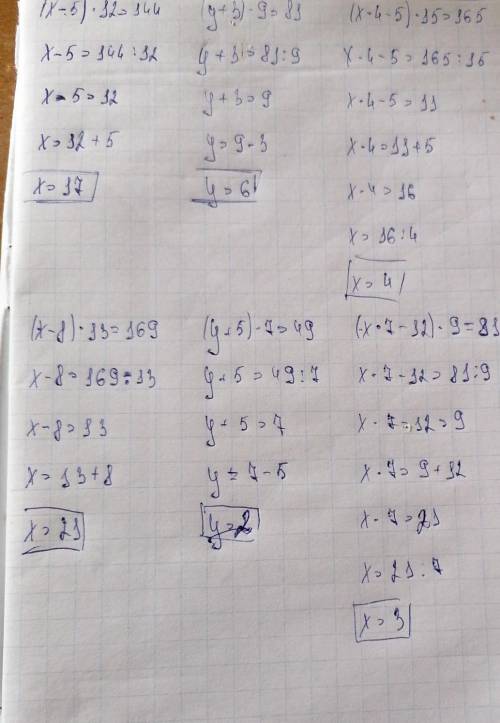 (x-5)·12=144
x-5=144:12
x-5=12
x=12+5
x=17
(y+3)·9=81
y+3=81:9
y+3=9
y=9-3
y=6
(x·4-5)·15=165
x·4-5=165:15
x·4-5=11
x·4=11+5
x·4=16
x=16:4
x=4
(x-8)·13=169
x-8=169:13
x-8=13
x=13+8
x=21
(y+5)·7=49
y+5=49:7
y+5=7
y=7-5
y=2
(x·7-12)·9=81
x·7-12=81:9
x·7-12=9
x·7=9+12
x·7=21
x=21:7
x=3